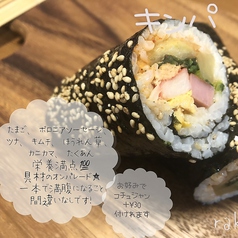 キンパ
たまご、ボロニアソーセージ、
ツナ、キムチ、ほうれん草、
カニカマ、たくあん
栄養満点
具材のオンパレード★
一本で満腹になること
間違いなしです!
お好みで
コチュジャン
+¥30
付けれます